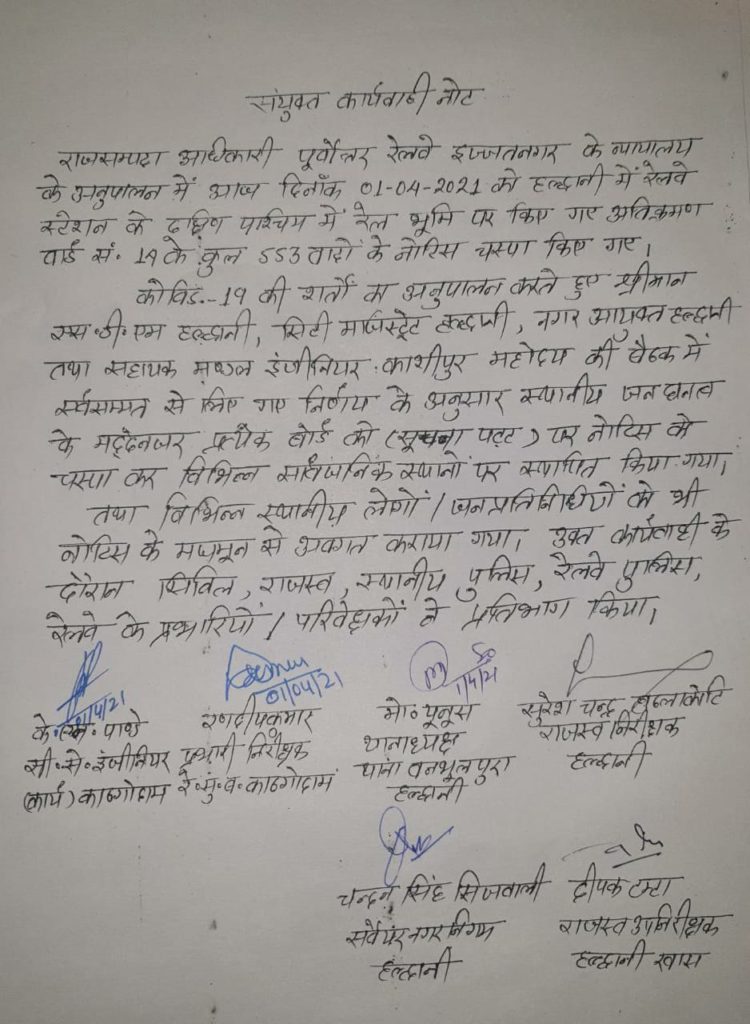 संयुक्त कार्यवाही नोट
राजसम्पदा अधिकारी पूर्वोत्तर रेलवे इज्जतनगर के न्यायालय
के अनुपालन में आज दिनाँक 01-04-2021 को हल्द्वानी में रेलवे
स्टेशन के दक्षिण पश्चिम में रेल भूमि पर किए गए अतिक्रमण
वार्ड सं. 14 के कुल 553 वादों के नोटिस चस्पा किए गए।
कोविड.-19 की शर्तों का अनुपालन करते हुए श्रीमान
एस.डी.एम हल्द्वानी, सिटी मजिस्ट्रेट हल्द्वानी, नगर आयुक्त हल्द्वानी
तथा सहायक मण्डल इंजीनियर काशीपुर महोदय की बैठक में
सर्वसम्मत से लिए गए निर्णय के अनुसार स्थानीय जन घनत्व
के मद्देनजर प्रत्येक बोर्ड को (सूचना पट्ट) पर नोटिस को
चस्पा कर विभिन्न सार्वजनिक स्थानों पर स्थापित किया गया।
तथा विभिन्न स्थानीय लोगों / जनप्रतिनिधियों को भी
नोटिस के मजमून से अवगत कराया गया। उक्त कार्यवाही के
दौरान सिविल, राजस्व, स्थानीय पुलिस, रेलवे पुलिस,
रेलवे के प्रभारियों / परिवेक्षकों ने प्रतिभाग किया।
1/4/21 01/04/21 1/4/21
के. एन. पाण्डे रणदीप कुमार मो. यूनुस सुरेश चन्द्र बुधलाकोटि
सी. से. इंजीनियर प्रभारी निरीक्षक थानाध्यक्ष राजस्व निरीक्षक
(कार्य) काठगोदाम रे. सु. ब. काठगोदाम थाना वनभूलपुरा हल्द्वानी
हल्द्वानी
चन्दन सिंह सिजवाली दीपक टम्टा
सर्वेयर नगर निगम राजस्व उपनिरीक्षक
हल्द्वानी हल्द्वानी खास